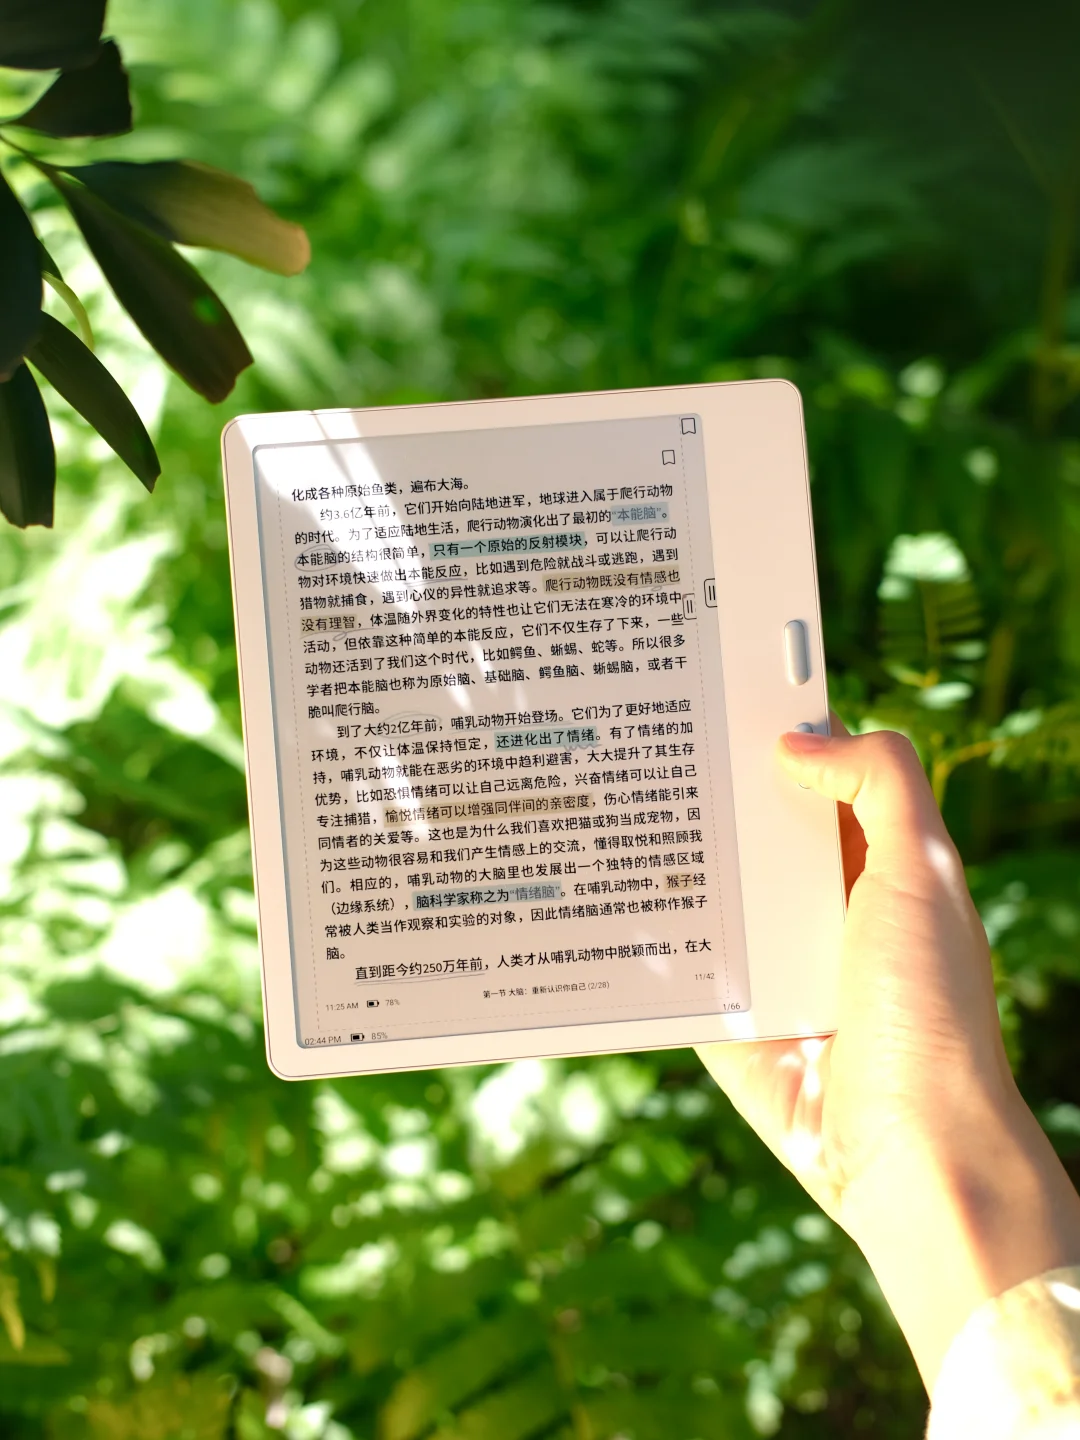 化成各种原始鱼类，遍布大海。
约3.6亿年前，它们开始向陆地进军，地球进入属于爬行动物
的时代。为了适应陆地生活，爬行动物演化出了最初的“本能脑”。
本能脑的结构很简单，只有一个原始的反射模块，可以让爬行动
物对环境快速做出本能反应，比如遇到危险就战斗或逃跑，遇到
猎物就捕食，遇到心仪的异性就追求等。爬行动物既没有情感也
没有理智，体温随外界变化的特性也让它们无法在寒冷的环境中
活动，但依靠这种简单的本能反应，它们不仅生存了下来，一些
动物还活到了我们这个时代，比如鳄鱼、蜥蜴、蛇等。所以很多
学者把本能脑也称为原始脑、基础脑、鳄鱼脑、蜥蜴脑，或者干
脆叫爬行脑。
到了大约2亿年前，哺乳动物开始登场。它们为了更好地适应
环境，不仅让体温保持恒定，还进化出了情绪。有了情绪的加
持，哺乳动物就能在恶劣的环境中趋利避害，大大提升了其生存
优势，比如恐惧情绪可以让自己远离危险，兴奋情绪可以让自己
专注捕猎，愉悦情绪可以增强同伴间的亲密度，伤心情绪能引来
同情者的关爱等。这也是为什么我们喜欢把猫或狗当成宠物，因
为这些动物很容易和我们产生情感上的交流，懂得取悦和照顾我
们。相应的，哺乳动物的大脑里也发展出一个独特的情感区域
（边缘系统），脑科学家称之为“情绪脑”。在哺乳动物中，猴子经
常被人类当作观察和实验的对象，因此情绪脑通常也被称作猴子
脑。
直到距今约250万年前，人类才从哺乳动物中脱颖而出，在大
11:25 AM 78% 第一节 大脑：重新认识你自己 (2/28) 11/42
02:44 PM 85% 1/66